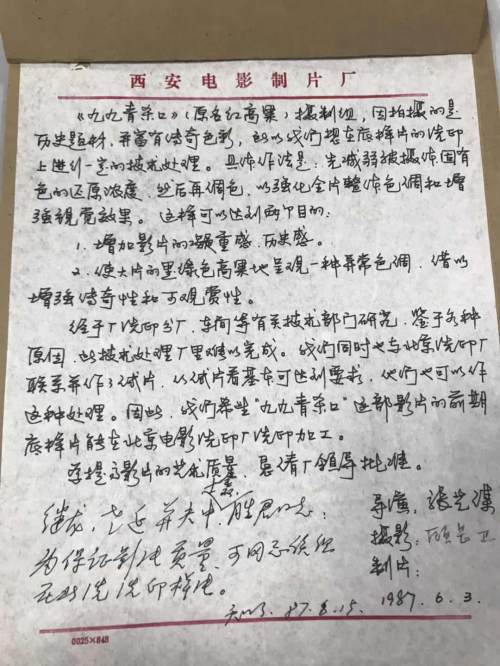 西安电影制片厂
《九九青杀口》(原名红高粱)摄制组,因拍摄的是
历史题材,并富有传奇色彩,所以我们想在底样片的洗印
上进行一定的技术处理。具体作法是:先减弱被摄体固有
色的还原浓度,然后再调色,以强化全片整体色调和增
强视觉效果。这样可以达到两个目的:
1. 增加影片的凝重感、历史感。
2. 使大片的墨绿色高粱地呈现一种异常色调,借以
增强传奇性和可观赏性。
经于厂洗印分厂、车间等有关技术部门研究,鉴于各种
原因,此技术处理厂里难以完成。我们同时也与北京洗印厂
联系并作了试片,从试片看基本可达到要求,他们也可以作
这种处理。因此,我们希望"九九青杀口"这部影片的前期
底样片能在北京电影洗印厂洗印加工。
为提高影片的艺术质量,恳请厂领导批准。
导演:张艺谋
摄影:顾长卫
制片:
1987.6.3.
为保证影片质量,可同意
在北洗洗印样片。
87.6.15.
0025×848